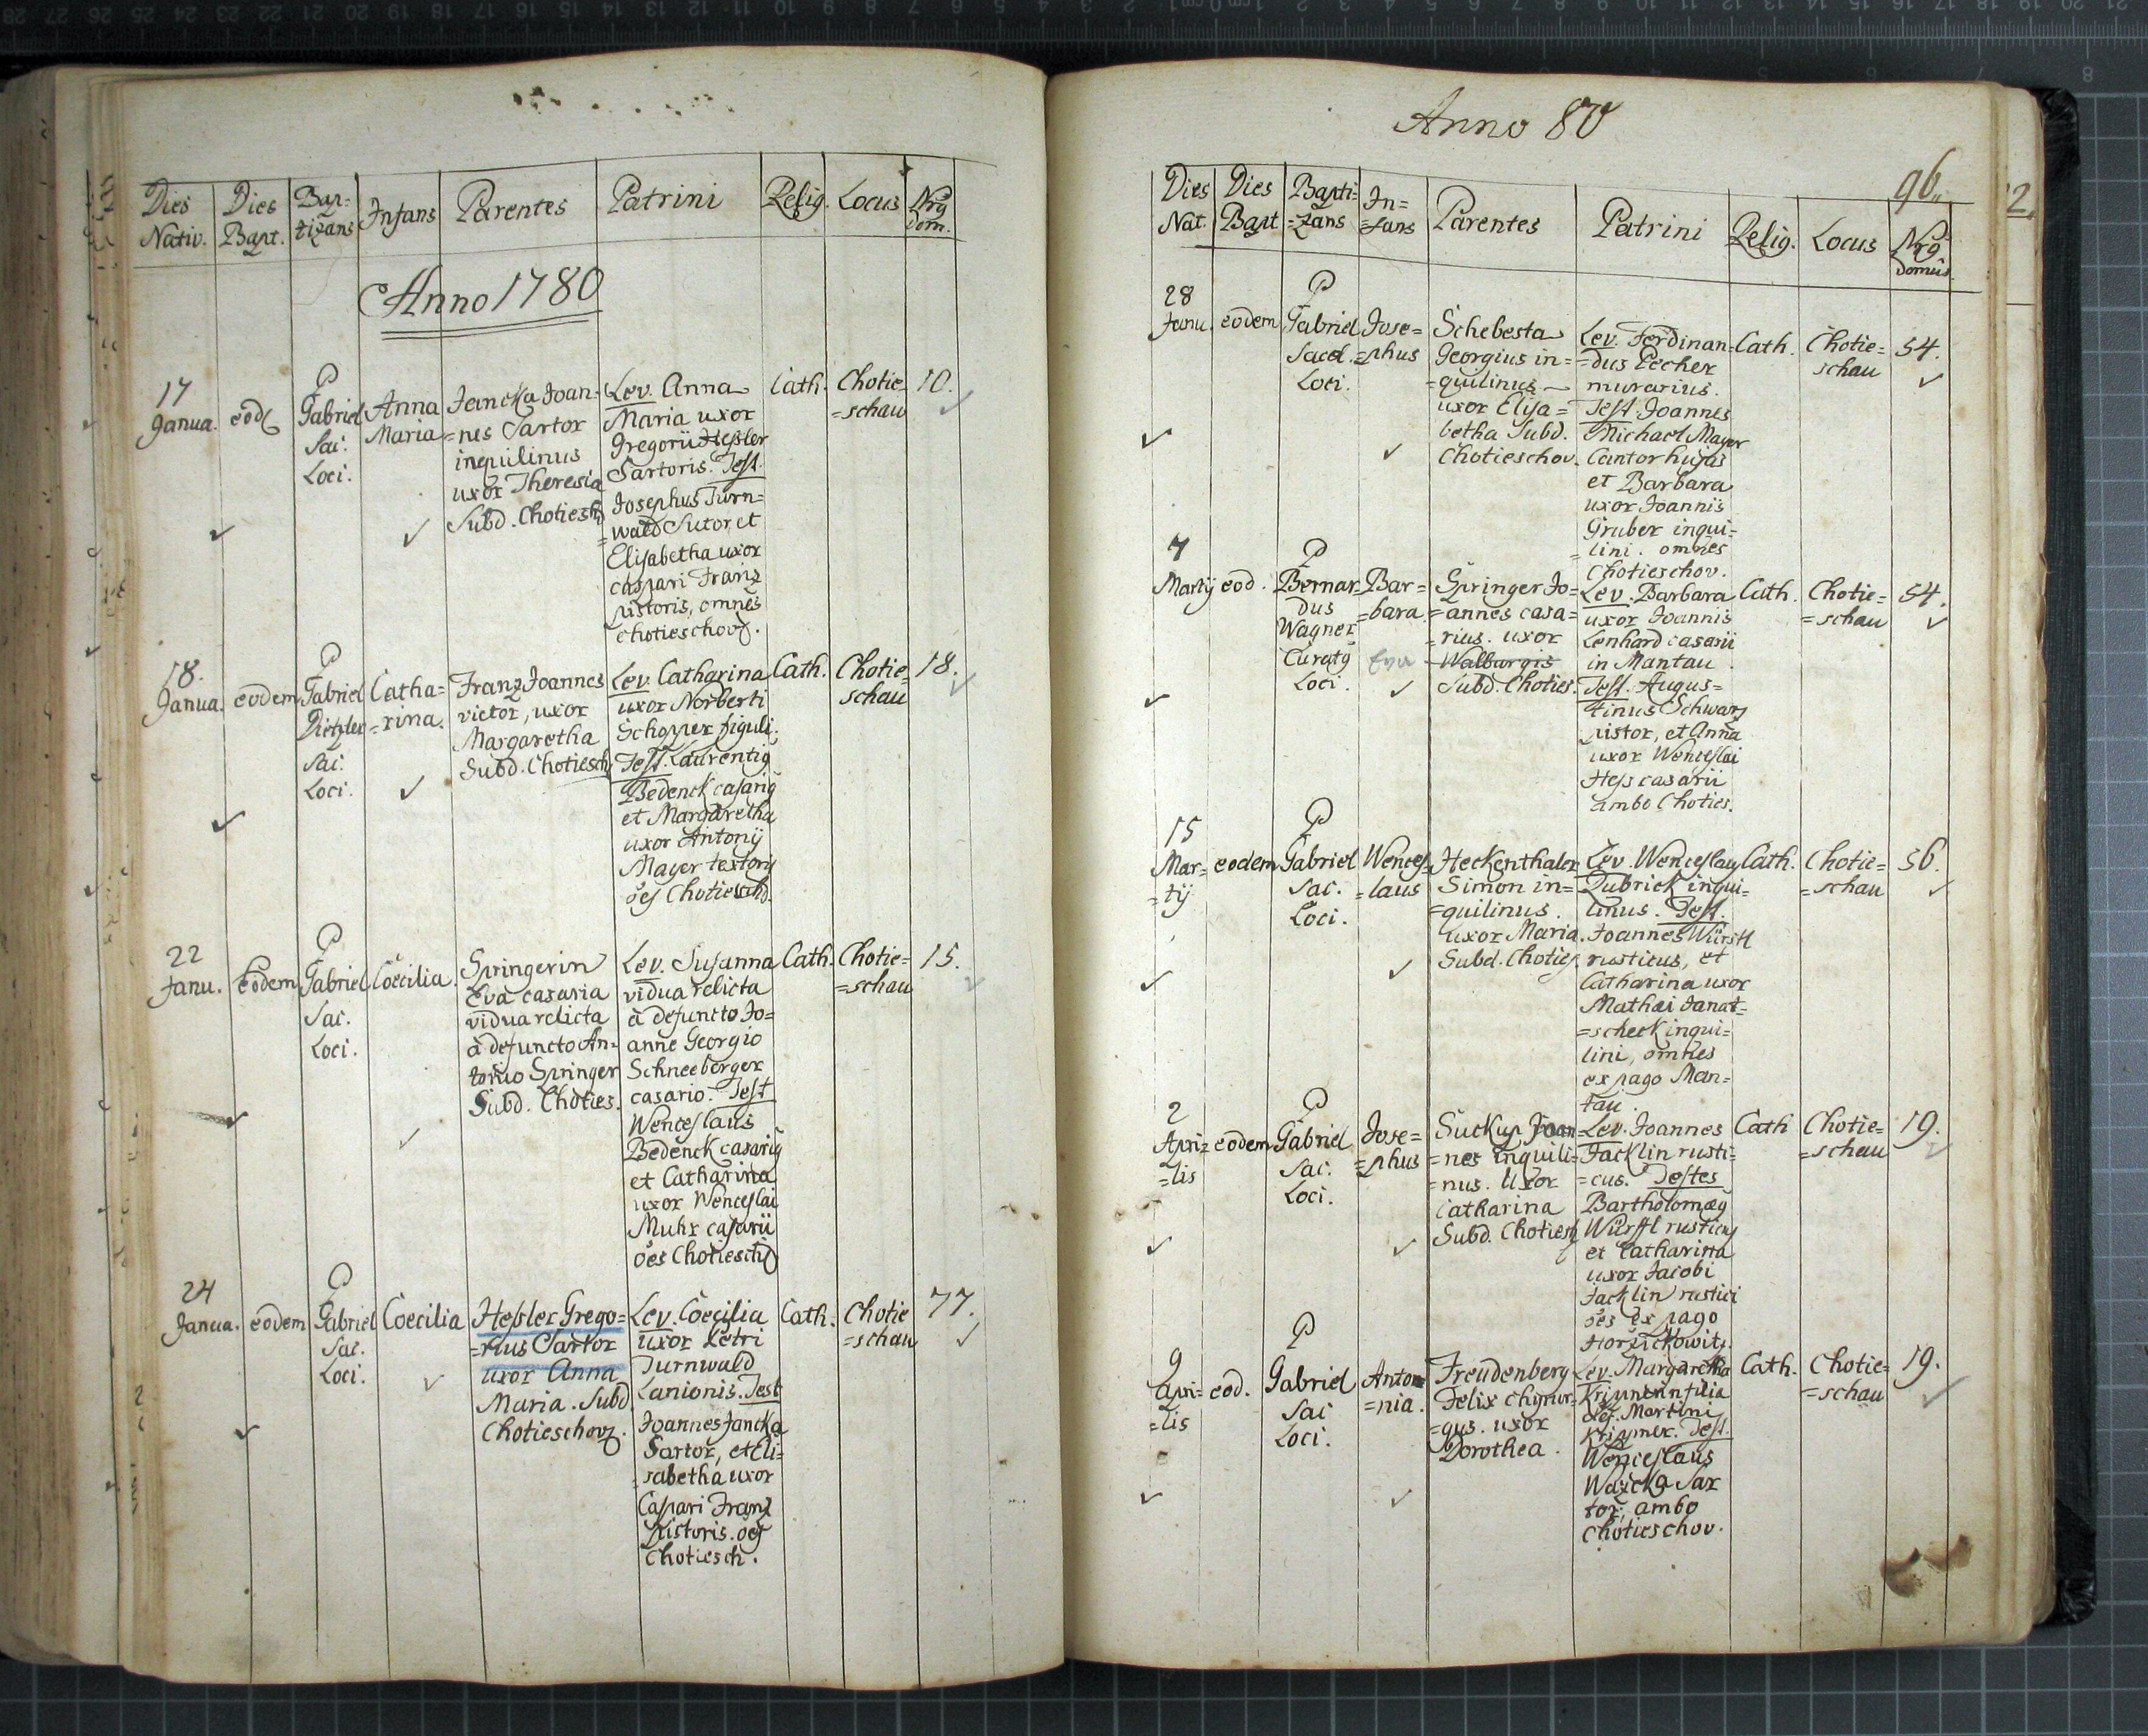 Dies Nativ.
Dies Bapt.
Bap=
tizans
Infans
Parentes
Patrini
Relig.
Locus
Nrg Dom.
Anno 1780
17
Janua.
eod
P
Gabriel
Sac.
Loci.
Anna
Maria
Jancka Joan=
=nes Sartor
inquilinus
uxor Theresia
Subd. Chotiesch
Lev. Anna
Maria uxor
Gregorii Hessler
Sartoris. Test.
Josephus Turn=
=wald Sutor, et
Elisabetha uxor
Caspari Franz
pistoris, omnes
Chotieschov.
Cath.
Chotie=
=schau
10.
18.
Janua.
eodem
P
Gabriel
Dietzler
Sac.
Loci.
Catha=
=rina.
Franz Joannes
vietor, uxor
Margaretha
Subd. Chotiesch
Lev. Catharina
uxor Norberti
Schopper figuli.
Test. Laurentig
Bedenck casarig
et Margaretha
uxor Antonij
Mayer textorij
oes Chotiesch.
Cath.
Chotie=
schau
18.
22
Janu.
Eodem
P
Gabriel
Sac.
Loci.
Coecilia.
Springerin
Eva casaria
vidua relicta
à defuncto An=
tonio Springer
Subd. Choties.
Lev. Susanna
vidua relicta
à defuncto Jo=
anne Georgio
Schneeberger
casario. Test
Wenceslaus
Bedenck casarig
et Catharina
uxor Wenceslai
Muhr casarii
oes Chotiesch
Cath.
Chotie=
=schau
15.
24
Janua.
eodem
P
Gabriel
Sac.
Loci.
Coecilia
Hessler Grego=
=rius Sartor
uxor Anna
Maria. Subd
Chotieschov.
Lev. Coecilia
uxor Petri
Turnwald
Lanionis. Test
Joannes Jancka
Sartor, et Eli=
sabetha uxor
Caspari Franz
pistoris. oes
Chotiesch.
Cath.
Chotie
=schau
77.
Anno 80
96.
2.
Dies
Nat.
Dies
Bapt
Bapti=
=zans
In=
=fans
Parentes
Patrini
Relig.
Locus
Nrg
domus.
28
Janu.
eodem
P
Gabriel
Sacd.
Loci.
Jose=
=phus
Schebesta
Georgius in=
=quilinus
uxor Elisa=
betha Subd.
Chotieschov.
Lev. Ferdinan=
=dus Pecher
murarius.
Test. Joannes
Michael Mayer
Cantor hujas
et Barbara
uxor Joannis
Gruber inqui=
=lini. omnes
Chotieschov.
Cath.
Chotie=
schau
54.
7
Martij
eod.
P
Bernar=
dus
Wagner
Curatg
Loci.
Bar=
=bara
Eva
Springer Jo=
=annes casa=
=rius. uxor
Walburgis
Subd. Choties.
Lev. Barbara
uxor Joannis
Lenhard casarii
in Mantau.
Test. Augus=
tinus Schwarz
pistor, et Anna
uxor Wenceslai
Hess casarii
ambo Choties.
Cath.
Chotie=
=schau
54.
15
Mar=
=tij
eodem
P
Gabriel
Sac.
Loci.
Wences=
=laus
Heckenthaler
Simon in=
=quilinus.
uxor Maria.
Subd. Choties.
Lev. Wenceslaus
Dubrick inqui=
linus. Test.
Joannes Würstl
rusticus, et
Catharina uxor
Mathaei Janat=
=scheck inqui=
lini, omnes
ex pago Man=
tau.
Cath.
Chotie=
=schau
56.
2
Apri=
=lis
eodem
P
Gabriel
Sac.
Loci.
Jose=
=phus
Suckup Joan=
=nes inquili=
=nus. Uxor
Catharina
Subd. Chotiesch
Lev. Joannes
Jacklin rusti=
=cus. Testes
Bartholomaeg
Würstl rusticus
et Catharina
uxor Jacobi
Jacklin rustici
oes ex pago
Horzickowitz.
Cath
Chotie=
=schau
19.
9
Apri=
=lis
eod.
P
Gabriel
Sac
Loci.
Anto
=nia.
Freudenberg
Felix chyrur=
=gus. uxor
Dorothea.
Lev. Margaretha
Krippnerin filia
def. Martini
Krippner. Test.
Wenceslaus
Wazicka Sar
tor, ambo
Chotieschov.
Cath.
Chotie=
=schau
19.